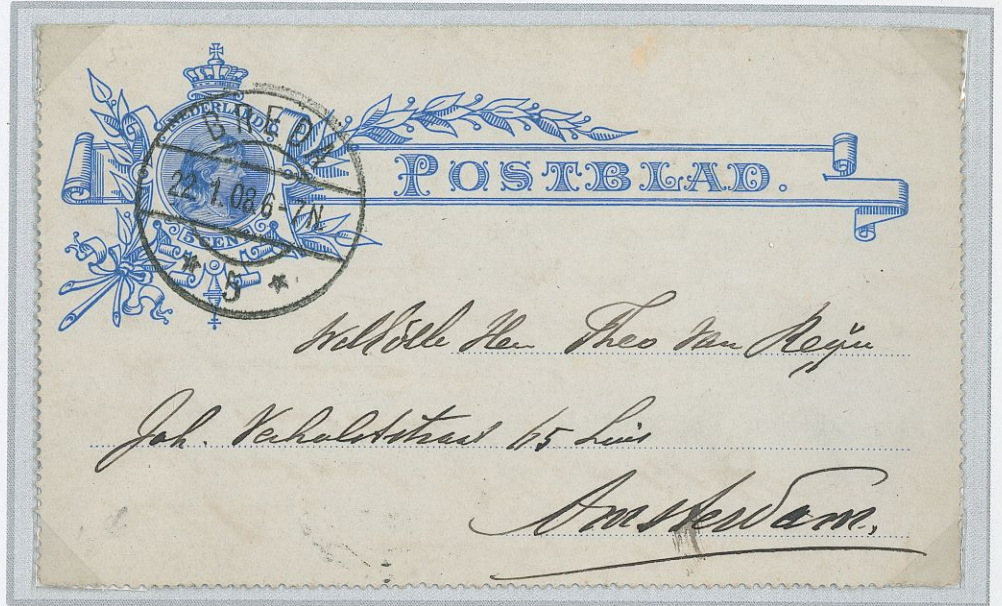 NEDERLAND
5 CENT
BREDA
22.1.08.6-7N
5
POSTBLAD.
WelEdele Heer Theo Van Reijn
Joh. Verhulststraat 65 huis
Amsterdam.